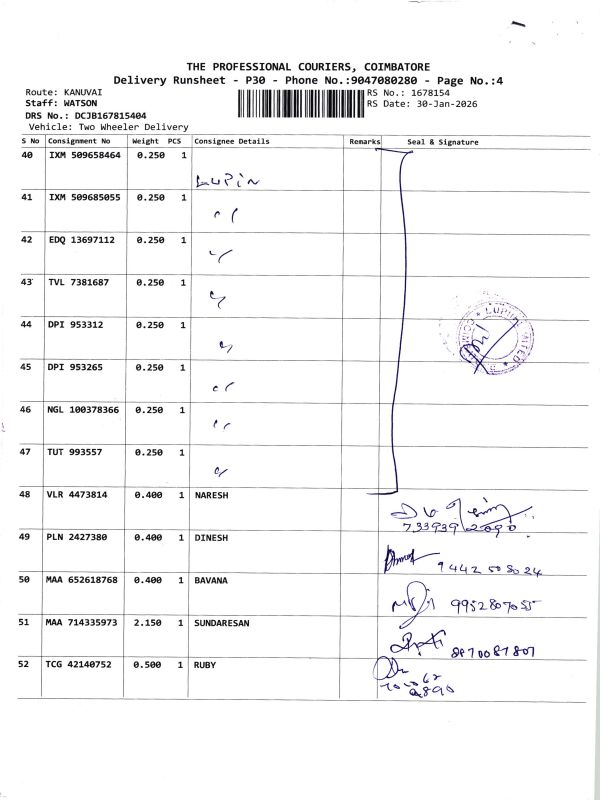 THE PROFESSIONAL COURIERS, COIMBATORE
Delivery Runsheet - P30 - Phone No.:9047080280 - Page No.:4
Route: KANUVAI
RS No.: 1678154
Staff: WATSON
RS Date: 30-Jan-2026
DRS No.: DCJB167815404
Vehicle: Two Wheeler Delivery
S No Consignment No Weight PCS Consignee Details Remarks Seal & Signature
40 IXM 509658464 0.250 1
LUPIN
41 IXM 509685055 0.250 1
42 EDQ 13697112 0.250 1
43 TVL 7381687 0.250 1
44 DPI 953312 0.250 1
45 DPI 953265 0.250 1
46 NGL 100378366 0.250 1
47 TUT 993557 0.250 1
48 VLR 4473814 0.400 1 NARESH
733939 2090
49 PLN 2427380 0.400 1 DINESH
9442508024
50 MAA 652618768 0.400 1 BAVANA
9952807055
51 MAA 714335973 2.150 1 SUNDARESAN
8870087807
52 TCG 42140752 0.500 1 RUBY